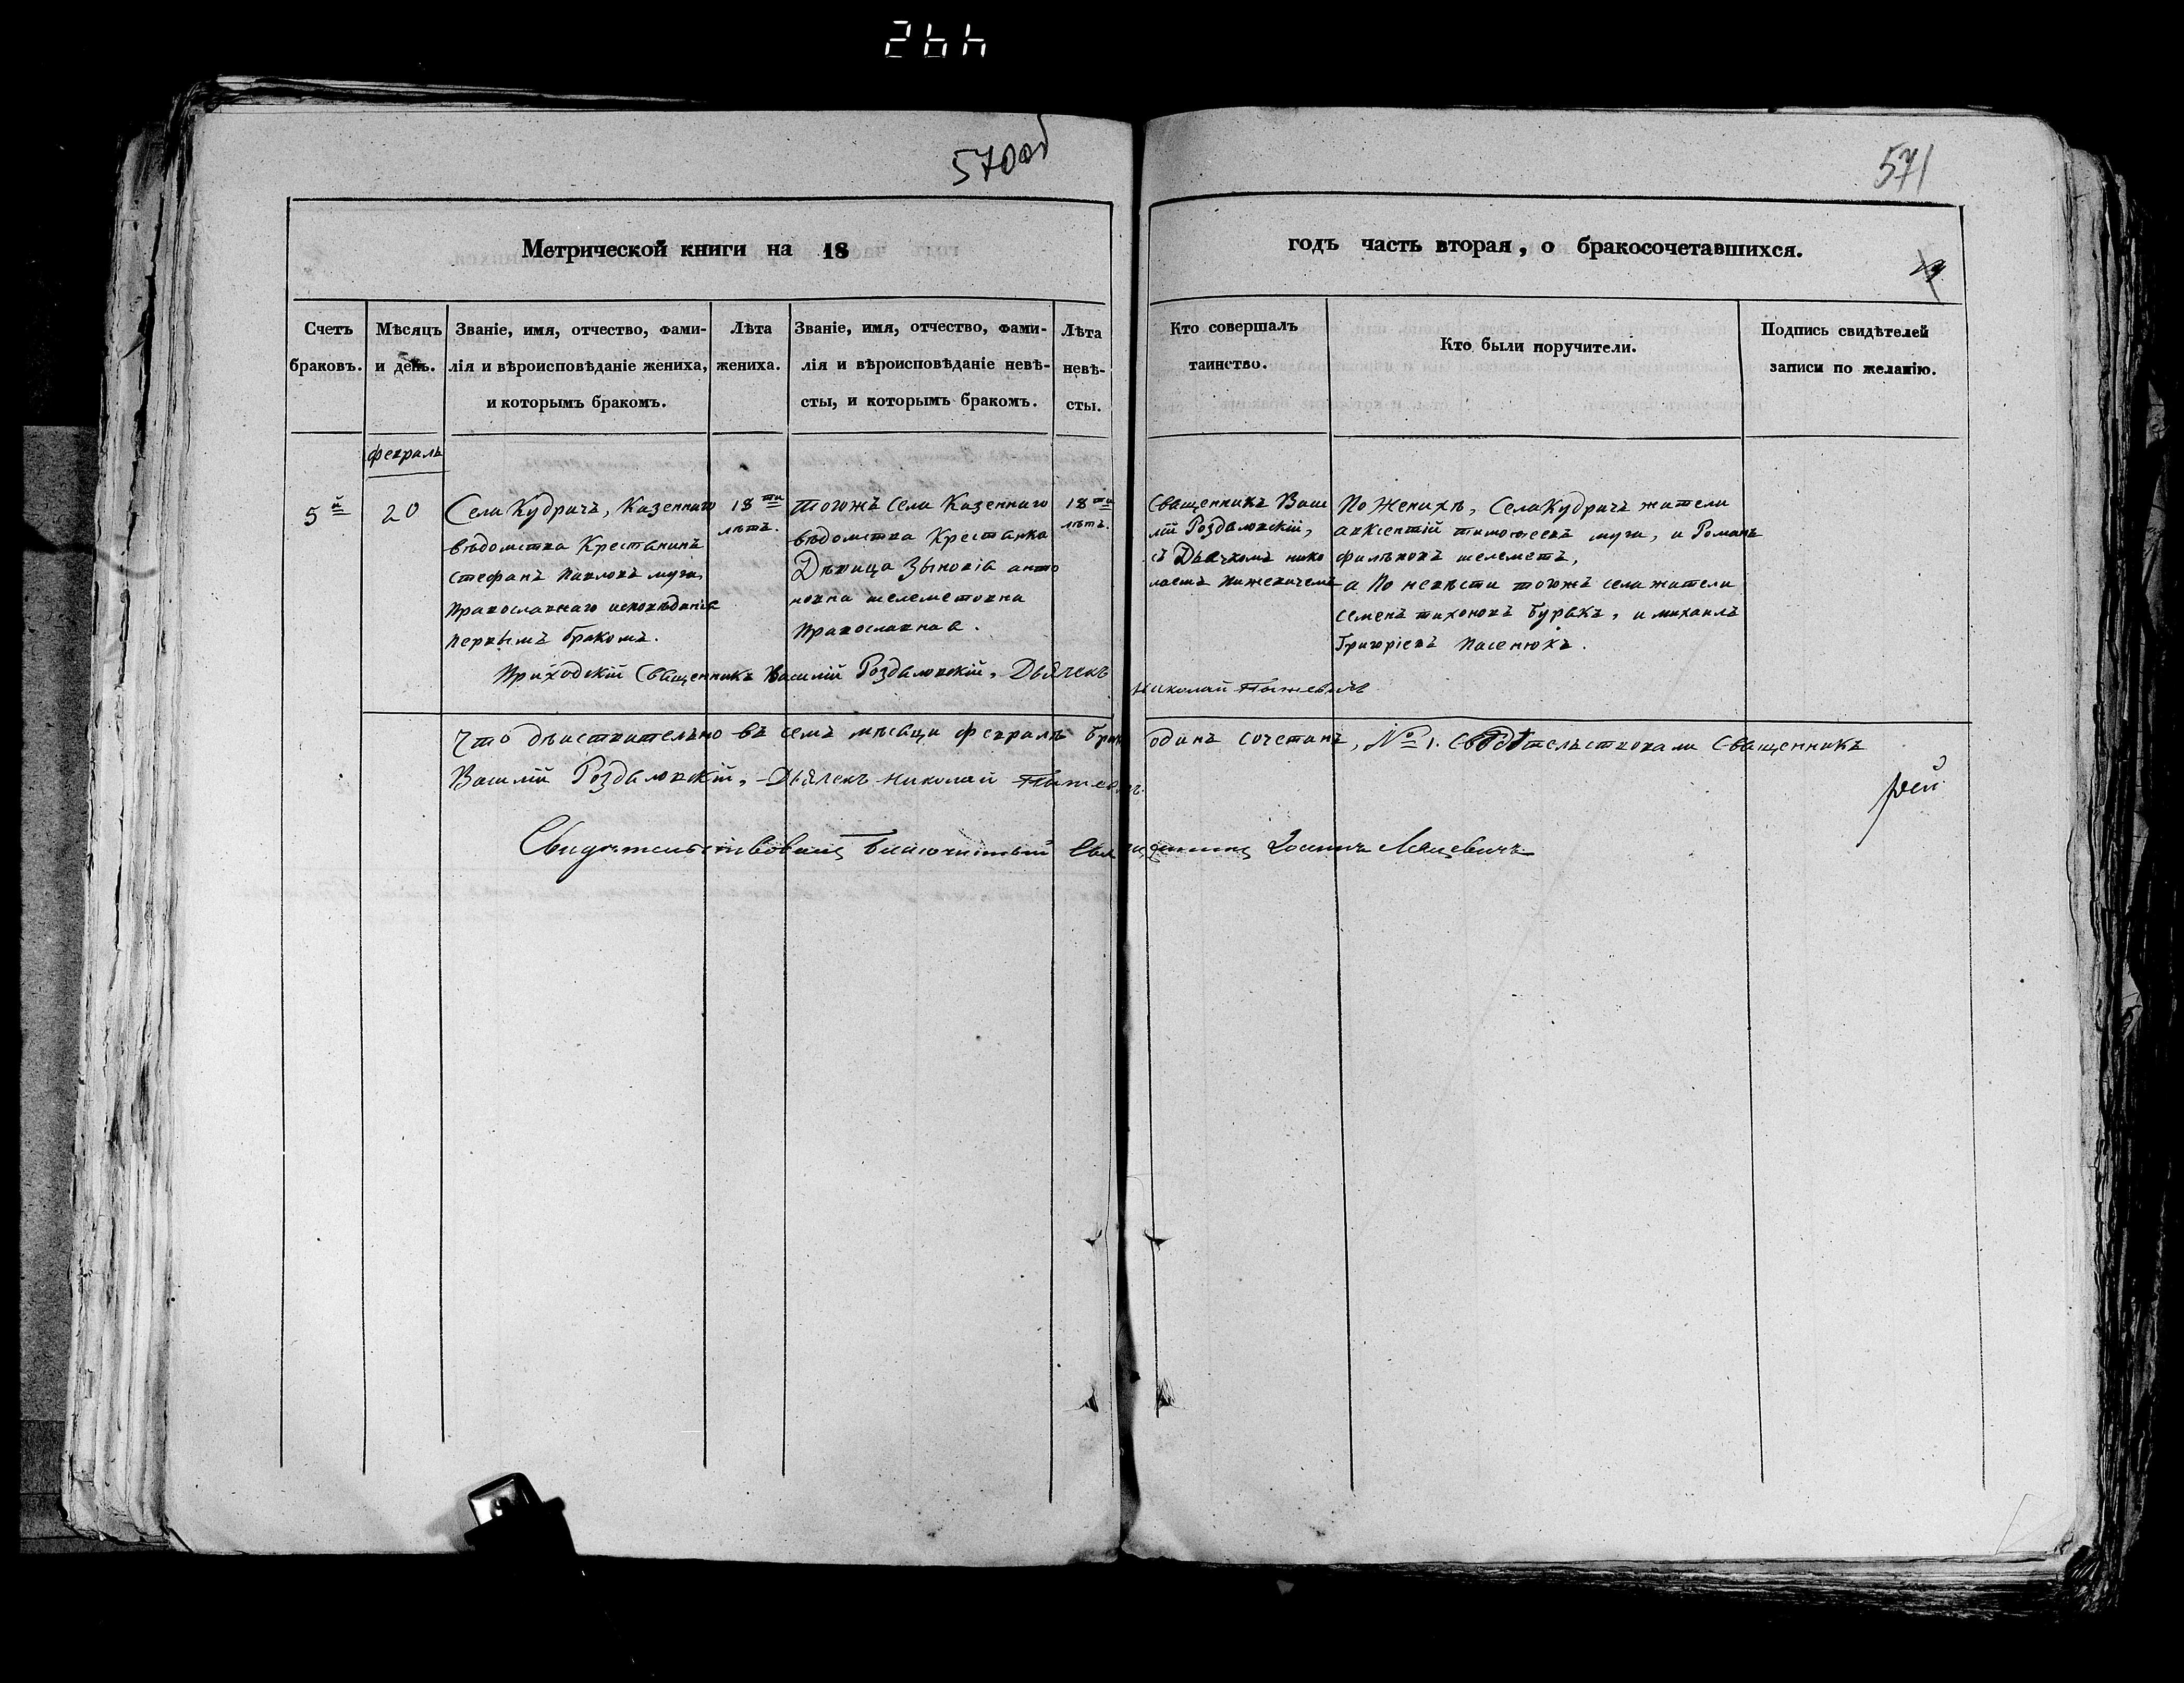 570об
571
Метрической книги на 18
годъ часть вторая, о бракосочетавшихся.
Счетъ браковъ.
Мѣсяцъ и день.
Званіе, имя, отчество, фами-
лія и вѣроисповѣданіе жениха,
и которымъ бракомъ.
Лѣта
жениха.
Званіе, имя, отчество, фами-
лія и вѣроисповѣданіе невѣ-
сты, и которымъ бракомъ.
Лѣта
невѣ-
сты.
Кто совершалъ
таинство.
Кто были поручители.
Подпись свидѣтелей
записи по желанію.
февраль
5й
20
Села Кудричъ, Казеннаго
вѣдомства Крестянинъ
стефанъ павловъ муха,
православнаго исповѣданія
первымъ бракомъ.
18ти
лѣтъ.
тогожъ села Казеннаго
вѣдомства Крестянка
Дѣвица Зыновія анто
новна шелеметовна
православная.
18ти
лѣтъ.
Священникъ Васи
лій Роздяловскій,
съ Дьячкомъ нико
лаемъ
По Женихѣ, Села Кудричъ жители
авксентій тимофеевъ муха, и Романъ
филѣповъ шелеметъ,
а По невѣсти тогожъ села жители
семенъ тихоновъ бурякъ, и михаилъ
Григоріевъ пасенюкъ.
Приходскій Священникъ Василій Роздяловскій, Дьячекъ
Николай
Что дѣиствително въ семъ мѣсяци февралѣ бракъ одинъ сочетанъ, № 1. Священникъ
Василій Роздяловскій, Дьячекъ Николай
Свидѣтельствовалъ Благочинный Священникъ Іоаннъ